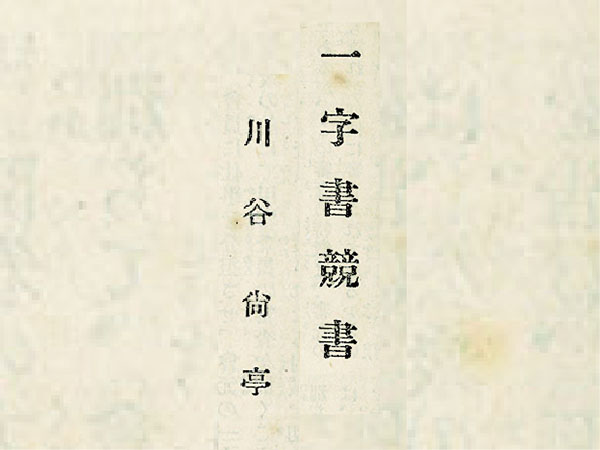 一字書競書
川谷尙亭